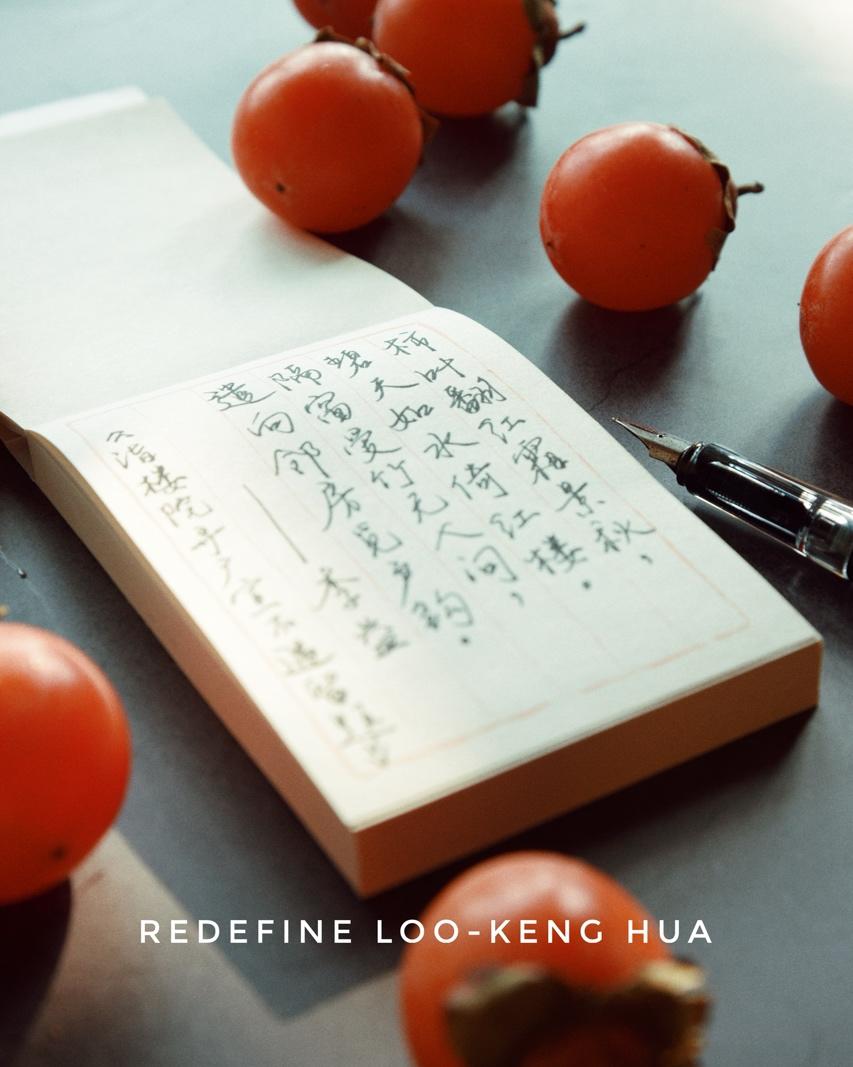 柿叶翻红霜景秋，
碧天如水倚红楼。
隔窗爱竹无人问，
遣向邻房觅户钩。
——李益
《诣楼院寻广宣不遇留题》
REDEFINE LOO-KENG HUA